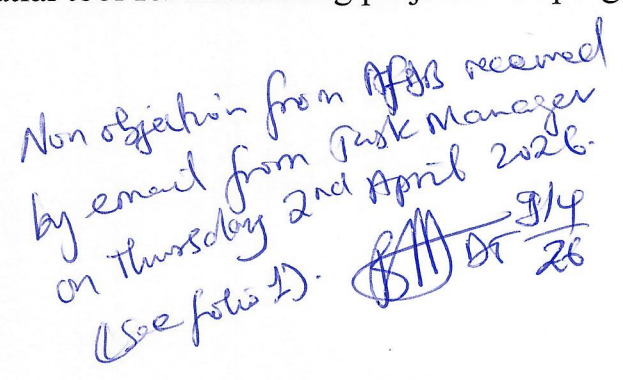 Non objection from AfDB received
by email from Task Manager
on Thursday 2nd April 2026.
(See folio 1). DT 9/4
26